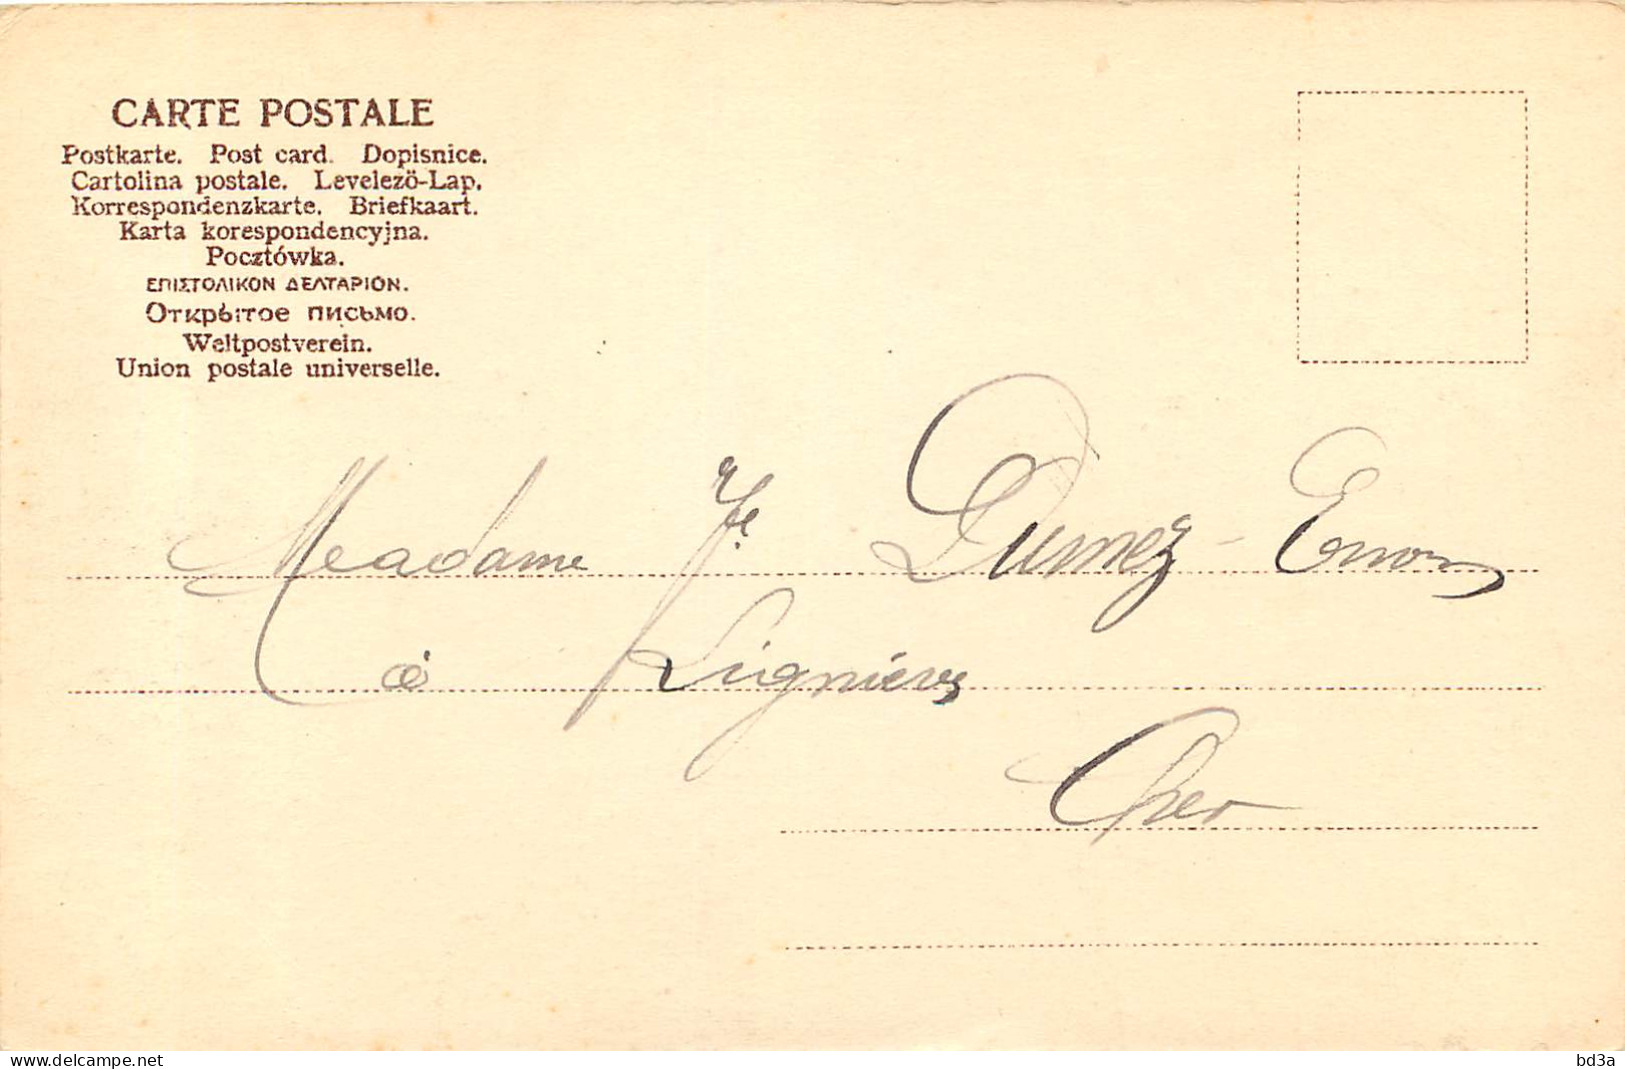 CARTE POSTALE
Postkarte. Post card. Dopisnice.
Cartolina postale. Levelezö-Lap.
Korrespondenzkarte. Briefkaart.
Karta korespondencyjna.
Pocztówka.
ΕΠΙΣΤΟΛΙΚΟΝ ΔΕΛΤΑΡΙΟΝ.
Открытое письмо.
Weltpostverein.
Union postale universelle.
Madame Dumez-
à Lignières
Cher
www.delcampe.net
bd3a